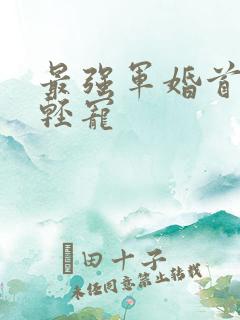 最强军婚首
轻宠
田十子
未经同意禁止转载